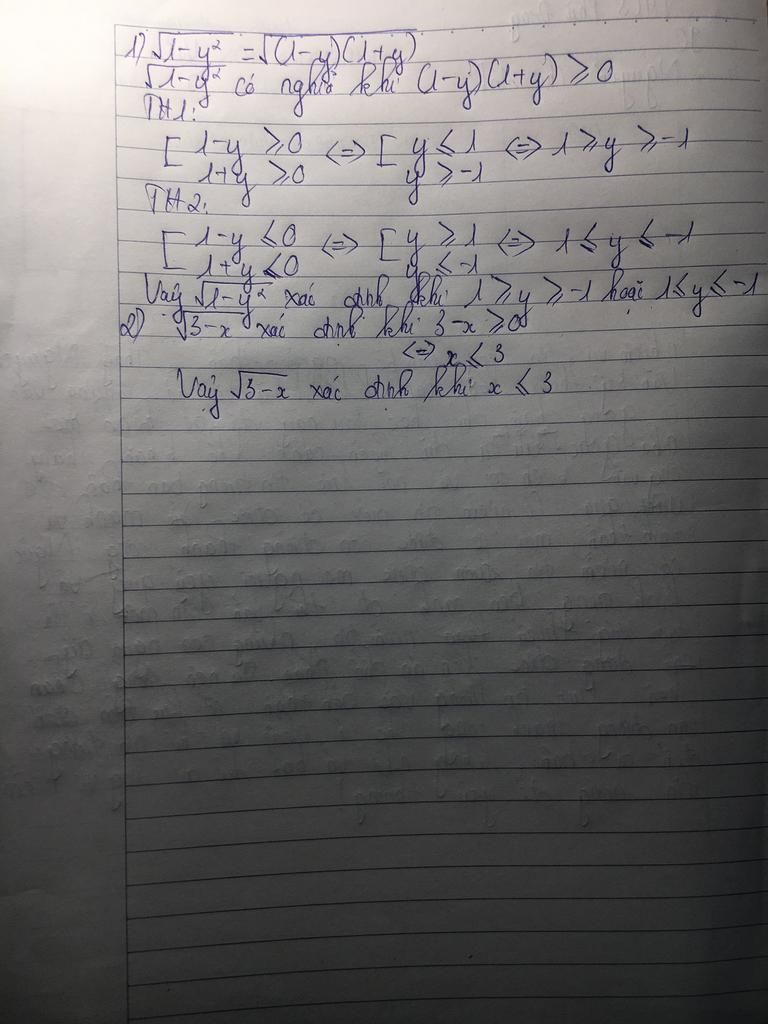 1) √1-y² = √(1-y)(1+y)
√1-y² có nghĩa khi (1-y)(1+y) ⩾ 0
TH1:
[ 1-y ⩾ 0 <=> [ y ⩽ 1 <=> 1 ⩾ y ⩾ -1
1+y ⩾ 0 y ⩾ -1
TH2:
[ 1-y ⩽ 0 <=> [ y ⩾ 1 <=> 1 ⩽ y ⩽ -1
1+y ⩽ 0 y ⩽ -1
Vậy √1-y² xác định khi 1 ⩾ y ⩾ -1 hoặc 1 ⩽ y ⩽ -1
2) √3-x xác định khi 3-x ⩾ 0
<=> x ⩽ 3
Vậy √3-x xác định khi x ⩽ 3